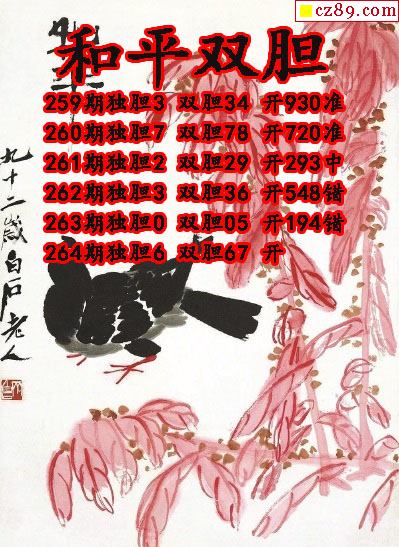 cz89.com
和平双胆
259期独胆3 双胆34 开930准
260期独胆7 双胆78 开720准
261期独胆2 双胆29 开293中
262期独胆3 双胆36 开548错
263期独胆0 双胆05 开194错
264期独胆6 双胆67 开
九十二岁白石老人